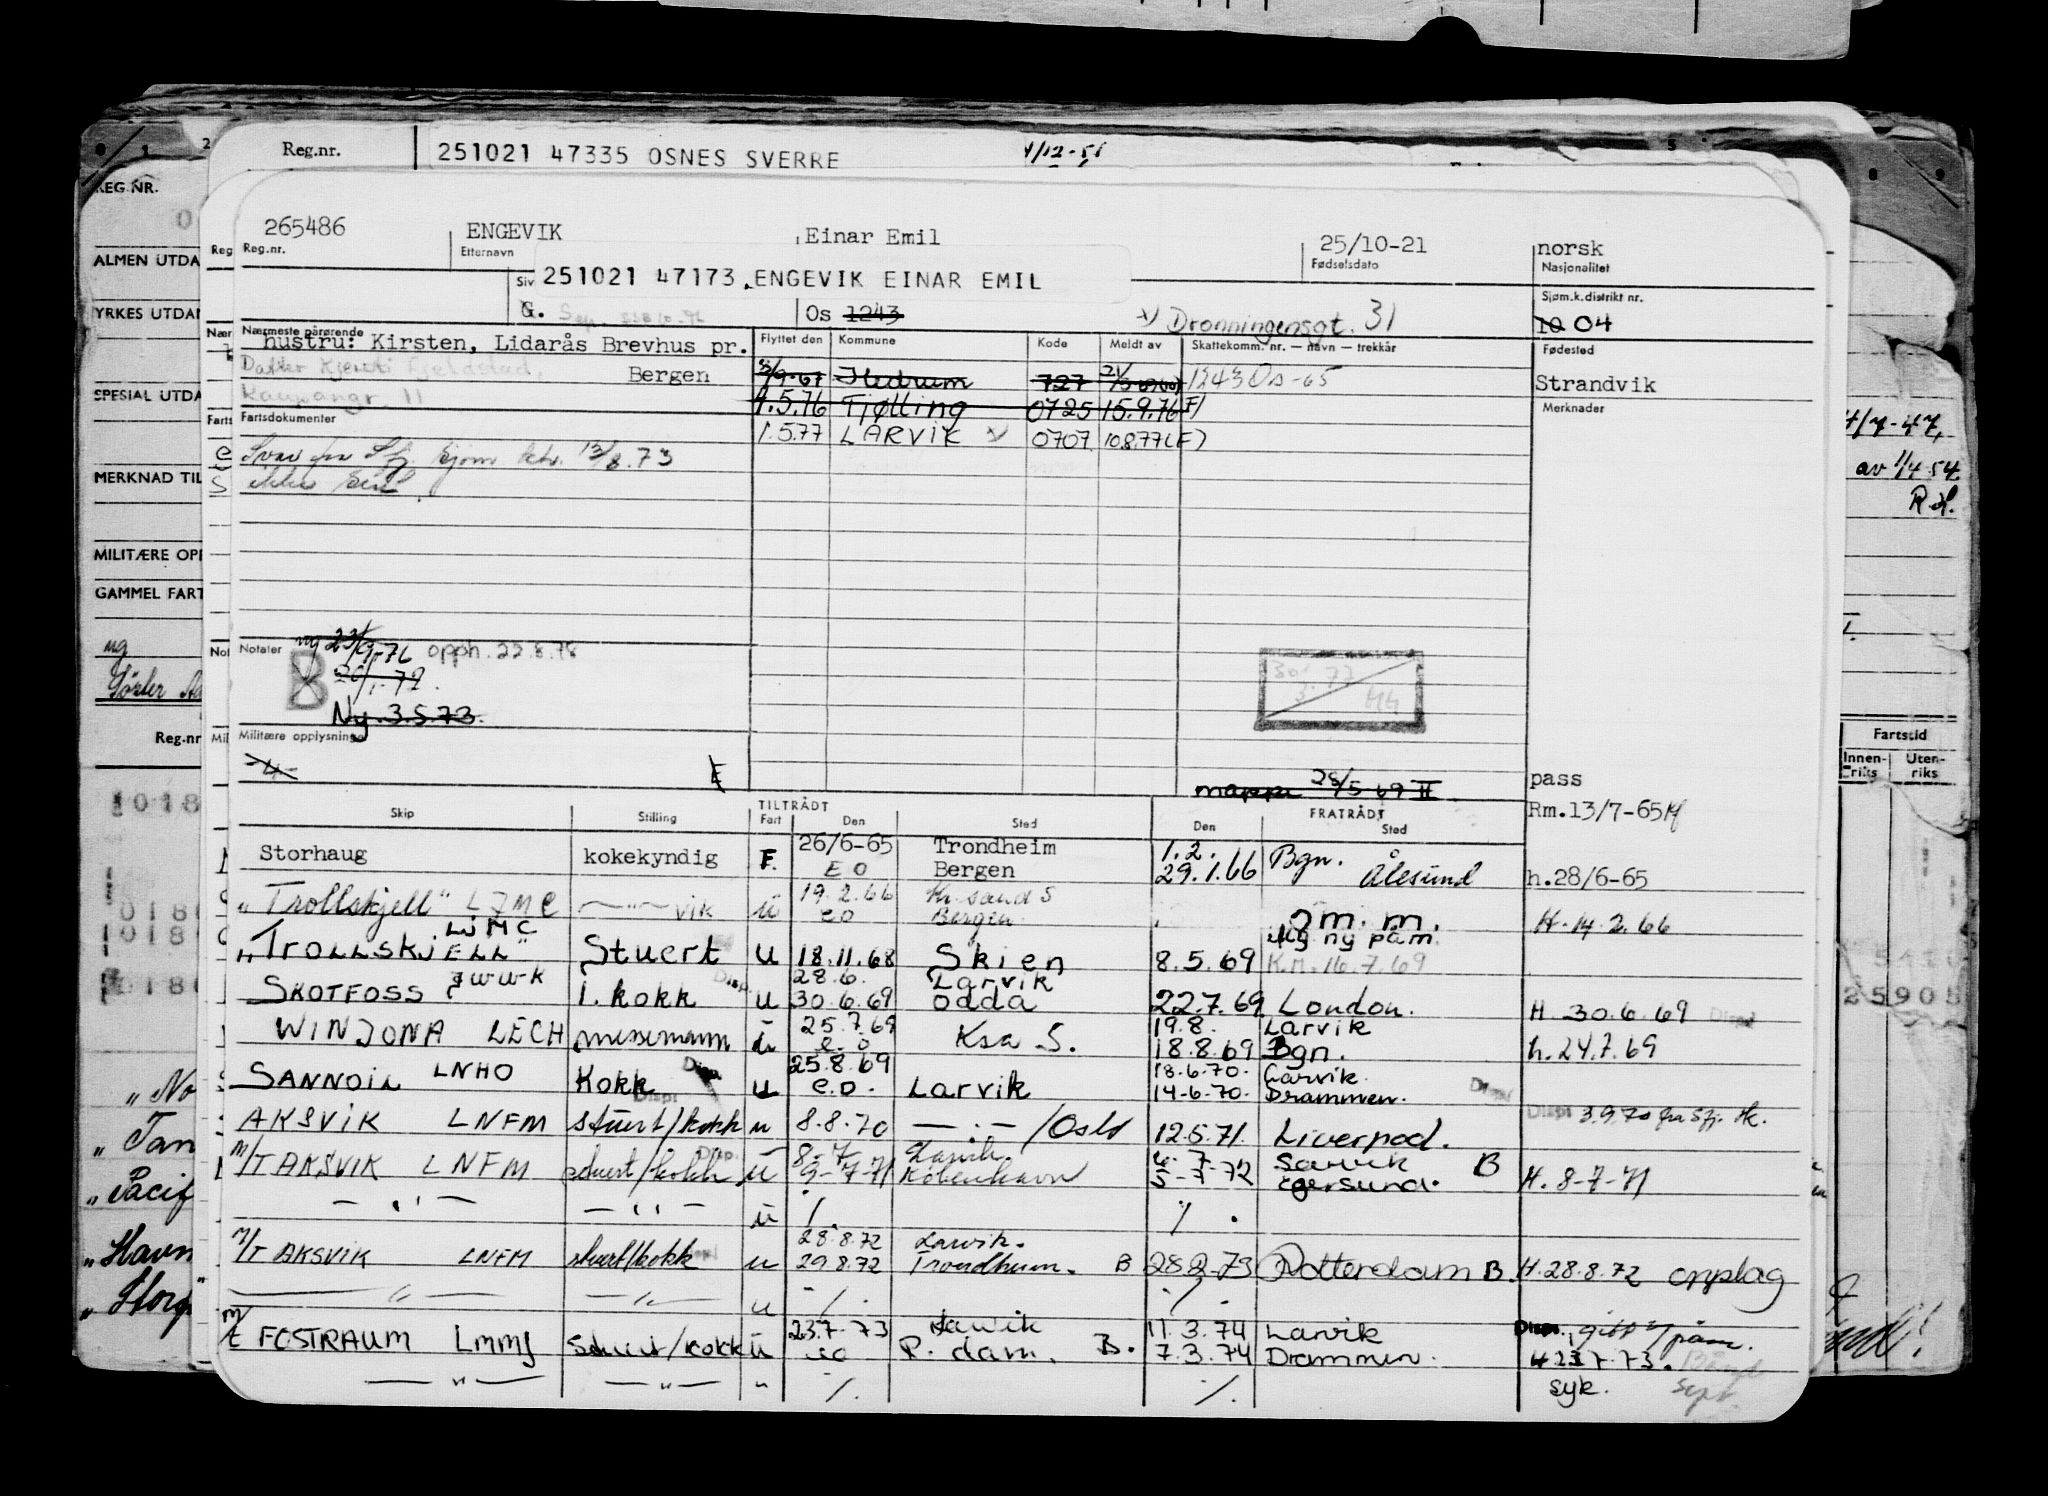 Reg.nr. 251021 47335 OSNES SVERRE
REG.NR.
ALMEN UTDA
YRKES UTDA
SPESIAL UTDA
MERKNAD TIL
MILITÆRE OPP
GAMMEL FART
ug
Reg.nr
265486 ENGEVIK Einar Emil 25/10-21 norsk
Reg.nr. Etternavn Fødselsdato Nasjonalitet
Siv 251021 47173 ENGEVIK EINAR EMIL Sjøm.k.distrikt nr.
G. Os 1243 x) Dronningensgt. 31 10 04
Nærmeste pårørende Flyttet den Kommune Kode Meldt av Skattekomm. nr. — navn — trekkår Fødested
hustru: Kirsten, Lidarås Brevhus pr. Bergen
Datter Kjersti Fjeldstad, Hedrum 727 1243 Os-65 Strandvik
Kaupangr. 11 1.5.76 Tjølling 0725 15.9.76 F) Merknader
Fartsdokumenter 1.5.77 LARVIK x) 0707 10.8.77 (F)
13/8.73
ikke
Notater ny 23/9-76 opph. 22.8.78
B
Ny. 3.5.73.
Militære opplysninger
-4-
mappe 28/5-69 II
pass
Rm.13/7-65
Skip Stilling TILTRÅDT FRATRÅDT
Fart Den Sted Den Sted
Storhaug kokekyndig F. 26/6-65 Trondheim 1.2. Bgn.
EO Bergen 29.1.66 Ålesund h.28/6-65
"Trollskjell" LJMC —"— vik u 19.2.66 Kr.sand S
eo Bergen. o m. m. H. 14.2.66
"TROLLSKJELL" LJMC Stuert u 18.11.68 Skien 8.5.69 ny påm. K.M. 16.7.69
SKOTFOSS JWWK 1. kokk Disp. u 28.6. Larvik
30.6.69 Odda 22.7.69 London. H 30.6.69
WINJONA LECH messemann u 25.7.69 19.8. Larvik
e.o Ksa S. 18.8.69 Bgn. h. 24.7.69
SANNOIL LNHO Kokk Disp. u 25.8.69 18.6.70. Larvik.
e.o. Larvik 14-6-70. Drammen.
AKSVIK LNFM stuert/kokk Disp u 8.8.70 —.—/Oslo 12.5.71. Liverpool. Disp 3.9.70 fra Sj. Hk.
M/T AKSVIK LNFM stuert/kokk Disp. u 8-7- Larvik. 4-7- Larvik B
9-7-71 København 5-7-72 Egersund. H. 8-7-71
— " — — " — u ./. ./.
M/T AKSVIK LNFM stuert/kokk u 28.8.72 Larvik.
29.8.72 Trondheim. B 28.2.73 Rotterdam B. H.28.8.72 opplag
— " — — " — u ./. ./.
M/T FOSTRAUM LMMJ Stuert/kokk u 23.7.73 Larvik 11.3.74 Larvik
eo R.dam. B. 7.3.74 Drammen. H 23.7.73.
— " — — " — " ./. ./. syk.
4/7-47,
av 1/4 54
Fartstid
Innen-riks Uten-riks
25905
"No
"Tan
"Pacif
"Havn